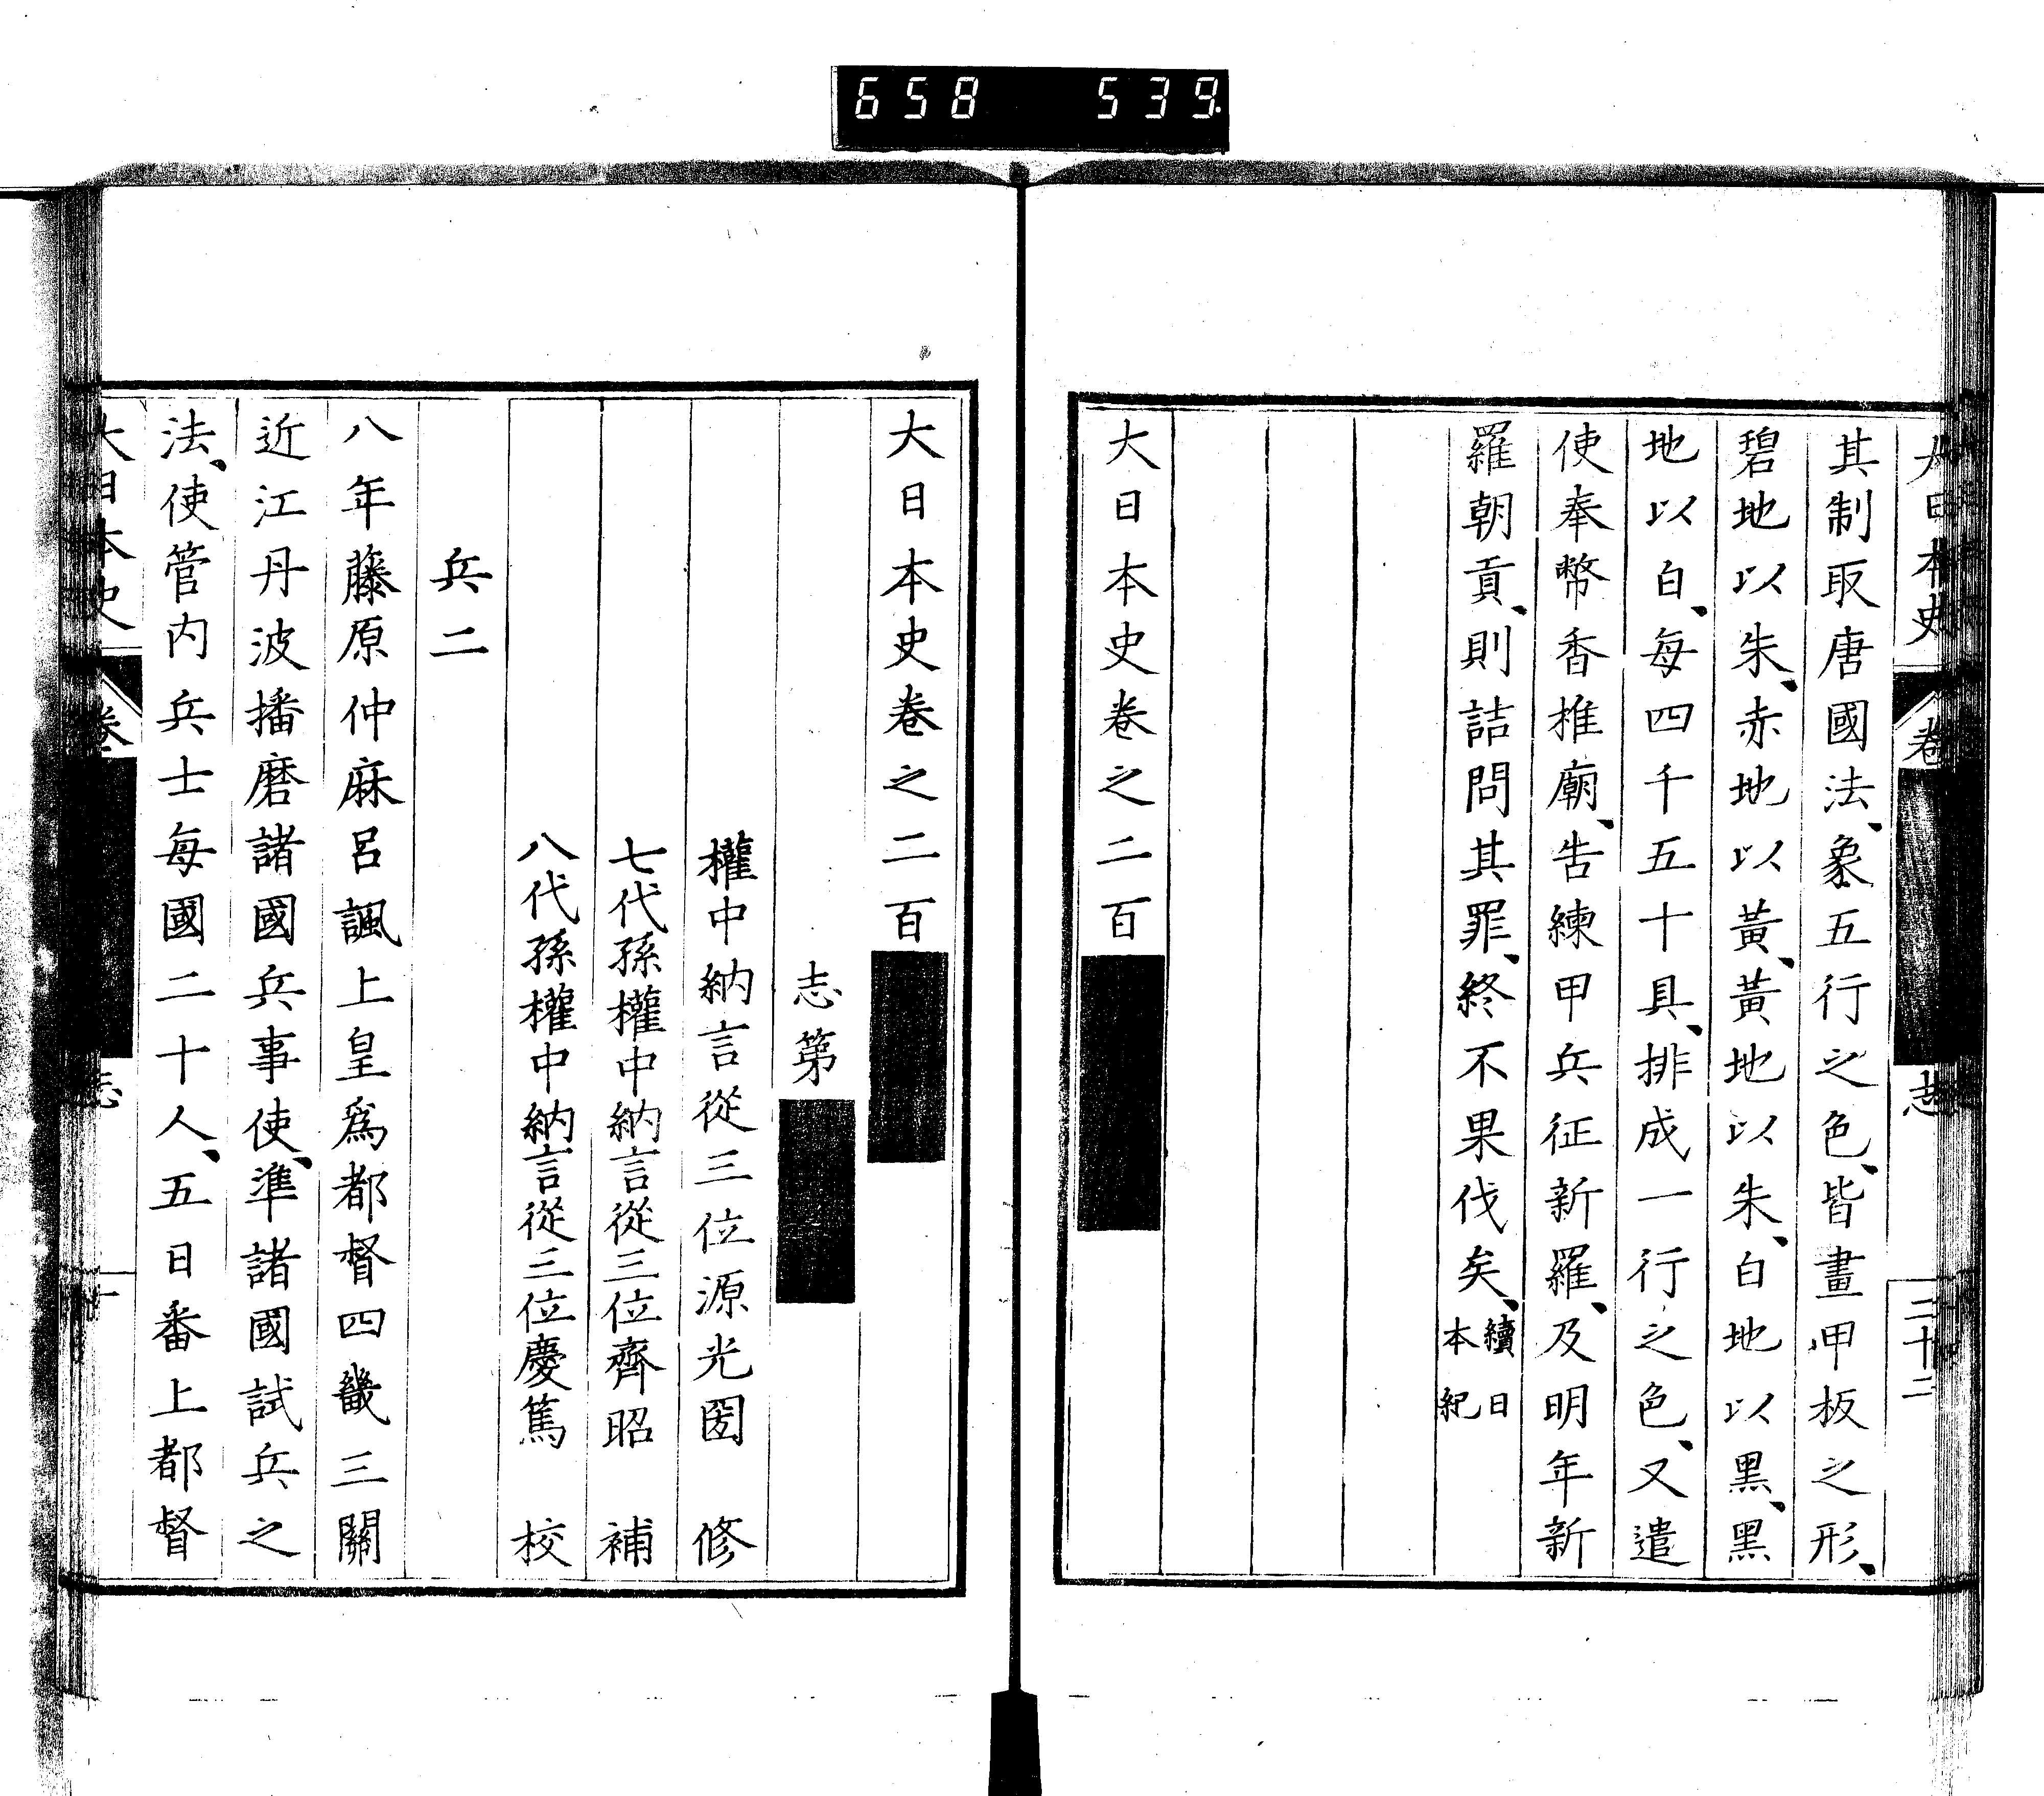 658 539
大日本史 卷 志 三十二
其制取唐國法、象五行之色、皆畫甲板之形、
碧地以朱、赤地以黃、黃地以朱、白地以黑、黑
地以白、每四千五十具、排成一行之色、又遣
使奉幣香椎廟、告練甲兵征新羅、及明年新
羅朝貢、則詰問其罪、終不果伐矣、續日本紀
大日本史卷之二百
大日本史卷之二百
志第
權中納言從三位源光圀 修
七代孫權中納言從三位齊昭 補
八代孫權中納言從三位慶篤 校
兵二
八年藤原仲麻呂諷上皇爲都督四畿三關
近江丹波播磨諸國兵事使、準諸國試兵之
法、使管內兵士每國二十人、五日番上都督
大日本史 卷 志 一